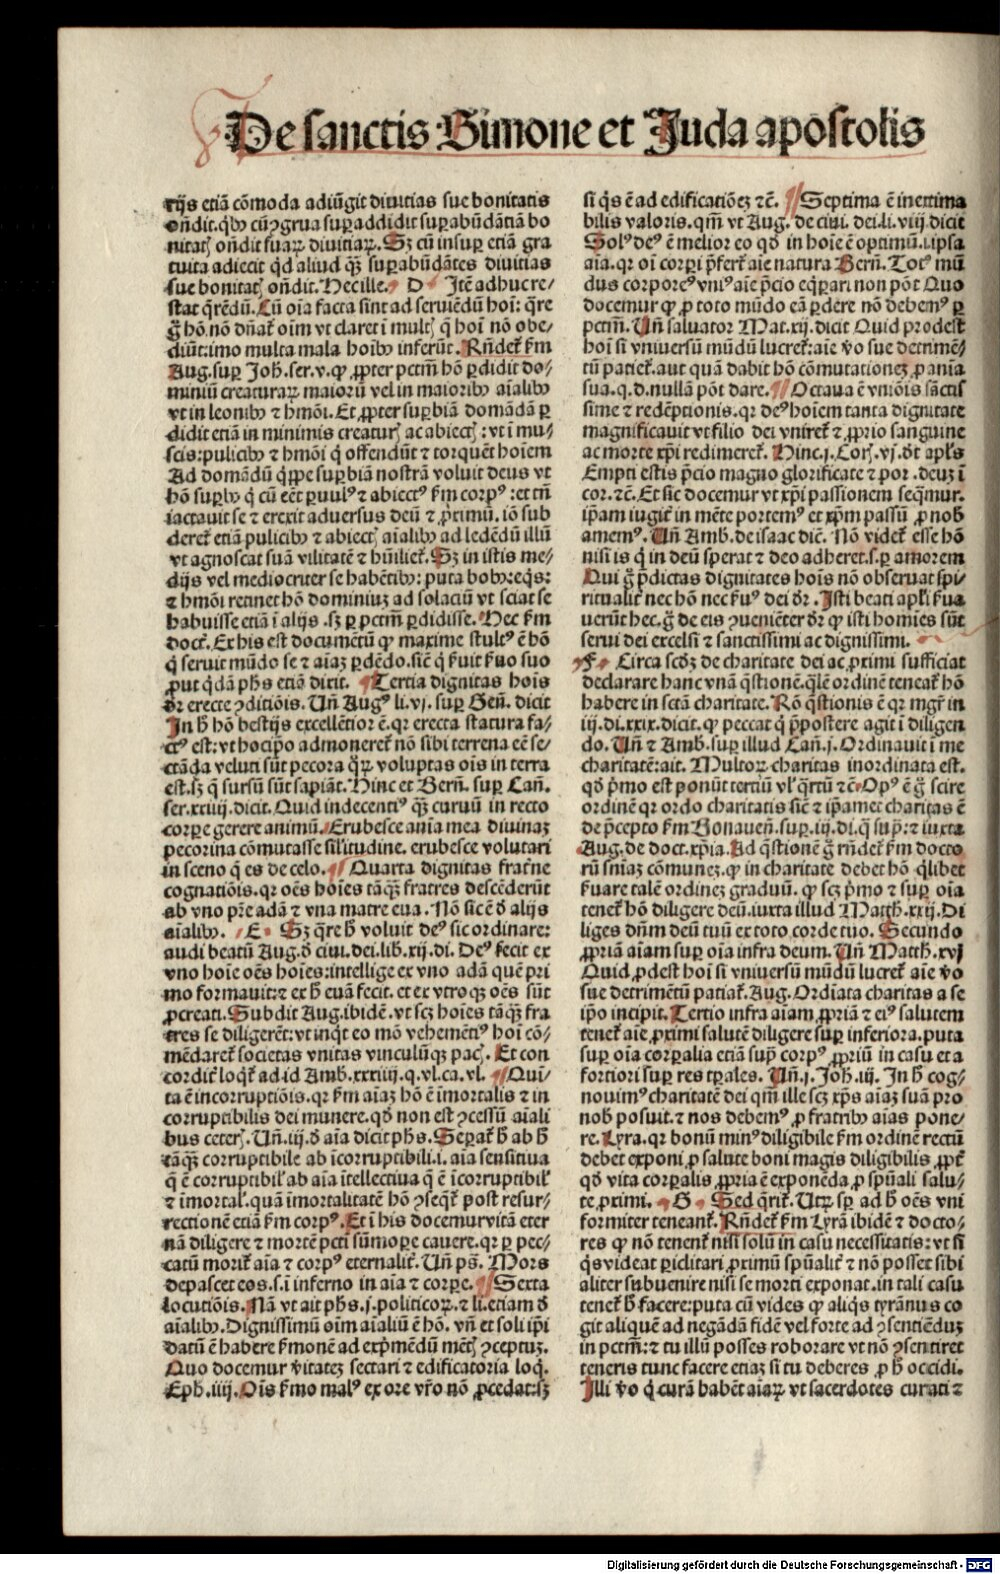 De sanctis Simone et Juda apostolis
rijs etiā cōmoda adiūgit diuitias sue bonitatis
oñdit. qb᷒ cū ꝯgrua suꝑaddidit suꝑabūdātiā bo
nitatꝭ oñdit suaꝝ diuitiaꝝ. Sꝫ cū insuꝑ etiā gra
tuita adiecit qd aliud qꝫ suꝑabūdātes diuitias
sue bonitatꝭ oñdit. Hec ille. D Itē adhuc re/
stat q̄rēdū. Cū oīa facta sint ad seruiēdū hoī: q̄re
g̊ hō nō dñat᷑ oīm vt claret ī multꝭ q̄ hoī nō obe/
diūt: imo multa mala hoīb᷒ inferūt. Rñdet᷑ ẜm
Aug. suꝑ Joh. ser. v. ꝙ ꝓpter pctm̄ hō ꝑdidit do/
miniū creaturaꝝ maiorū vel in maiorib᷒ aīalib᷒
vt in leonib᷒ ⁊ hmōi. Et ꝓpter suꝑbiā domādā ꝑ
didit etiā in minimis creaturꝭ ac abiectꝭ: vt ī mu/
scis: pulicib᷒ ⁊ hmōi q̄ offendūt ⁊ torquēt hoīem
Ad domādū q̄ppe suꝑbiā nostrā voluit deus vt
hō suꝑb᷒ q̄ cū eēt ꝑuul᷒ ⁊ abiect᷒ ẜm corp᷒: et tn̄
iactauit se ⁊ erexit aduersus deū ⁊ ꝓximū. iō sub
deret᷑ etiā pulicib᷒ ⁊ abiectꝭ aīalib᷒ ad ledēdū illū
vt agnoscat suā vilitatē ⁊ hūiliet᷑. Sꝫ in istis me/
dijs vel mediocriter se habētib᷒: puta bob᷒: eqs:
⁊ hmōi retinet hō dominiuꝫ ad solaciū vt sciat se
habuisse etiā ī alijs. sꝫ ꝑ pctm̄ ꝑdidisse. Hec ẜm
doct. Ex his est documētū ꝙ maxime stult᷒ ē hō
q̄ seruit mūdo se ⁊ aīaꝫ ꝑdēdo. sic̄ q̄ ẜuit ẜuo suo
ꝓut q̄dā phs etiā dixit. Tertia dignitas hoīs
dr̄ erecte ꝯditiōis. Uñ Aug᷒ li. vj. suꝑ Geñ. dicit
In h̊ hō bestijs excellētior ē. qr erecta statura fa/
ct᷒ est: vt hoc ip̄o admoneret᷑ nō sibi terrena eē se/
ctāda veluti sūt pecora q̄ꝝ voluptas oīs in terra
est. sꝫ q̄ sursū sūt sapiāt. Hinc et Berñ. suꝑ Cañ.
ser. xxiiij. dicit. Quid indecenti᷒ qꝫ curuū in recto
corꝑe gerere animū. Erubesce aīa mea diuinaꝫ
pecorina cōmutasse sil̄itudine. erubesce volutari
in sceno q̄ es de celo. Quarta dignitas frat̄ne
cognatiōis. qr oēs hoīes tāqꝫ fratres descēderūt
ab vno pr̄e adā ⁊ vna matre eua. Nō sic ē d̄ alijs
aīalib᷒. E Sꝫ q̄re h̊ voluit de᷒ sic ordinare:
audi beatū Aug. d̄ ciui. dei. lib. xij. di. De᷒ fecit ex
vno hoīe oēs hoīes: intellige ex vno adā quē pri
mo formauit: ⁊ ex h̊ euā fecit. et ex vtroqꝫ oēs sūt
ꝓcreati. Subdit Aug. ibidē. vt scꝫ hoīes tāqꝫ fra
tres se diligerēt: vt inqt eo mō vehemēti᷒ hoī cō/
mēdaret᷑ societas vnitas vinculūqꝫ pacꝭ. Et con
cordit᷑ loqt᷑ ad id Amb. xxxiiij. q. vl. ca. vl. Quī
ta ē incorruptiōis. qr ẜm aīaꝫ hō ē īmortalis ⁊ in
corruptibilis dei munere. qd̄ non est ꝯcessū aīali
bus ceterꝭ. Uñ. iij. d̄ aīa dicit phs. Seꝑat᷑ h̊ ab h̊
tāqꝫ corruptibile ab īcorruptibili. i. aīa sensitiua
q̄ ē corruptibil᷑ ab aīa ītellectiua q̄ ē īcorruptibil᷑
⁊ īmortal᷑. quā īmortalitatē hō ꝯseqt᷑ post resur/
rectionē etiā ẜm corp᷒. Et ī his docemur vitā eter
nā diligere ⁊ mortē pcti sūmoꝑe cauere. qr ꝑ pec/
catū morit᷑ aīa ⁊ corp᷒ eternalit᷑. Uñ ps. Mors
depascet eos. s. ī inferno in aīa ⁊ corꝑe. Sexta
locutiōis. Nā vt ait phs. j. politicoꝝ. ⁊ li. etiam d̄
aīalib᷒. Dignissimū oīm aīaliū ē hō. vñ et soli ip̄i
datū ē habere ẜmonē ad exp̄mēdū mētꝭ ꝯceptuꝫ.
Quo docemur v̄itatēs sectari ⁊ edificatoria loq̄.
Eph. iiij. Oīs ẜmo mal᷒ ex ore vr̄o nō ꝓcedat: sꝫ
si q̄s ē ad edificatiōeꝫ ⁊c̄. Septima ē inextima
bilis valoris. qm̄ vt Aug. de ciui. dei. li. viij. dicit
Sol᷒ de᷒ ē melior eo qd̄ in hoīe ē optimū. i. ipsa
aīa. qr oī corꝑi p̄fert᷑ aīe natura Berñ. Tot᷒ mū
dus corpore᷒ vni᷒ aīe p̄cio eq̄ꝑari non pōt Quo
docemur ꝙ ꝓ toto mūdo eā ꝑdere nō debem᷒ ꝑ
pctm̄. Uñ saluator Mat. xij. dicit Quid prodest
hoī si vniuersū mūdū lucret᷑: aīe v̊o sue detrimē/
tū patiet᷑. aut quā dabit hō cōmutationeꝫ ꝓ anīa
sua. q. d. nullā pōt dare. Octaua ē vniōis sāctis
sime ⁊ redēptionis. qr de᷒ hoīem tanta dignitate
magnificauit vt filio dei vniret᷑ ⁊ ꝓprio sanguine
ac morte xp̄i redimeret᷑. Hinc. j. Corꝭ. vj. dt̄ apl̄s
Empti estis p̄cio magno glorificate ⁊ por. deuꝫ ī
cor. ⁊c̄. Et sic docemur vt xp̄i passionem seq̄mur.
ip̄am iugit᷑ in mēte portem᷒ et xp̄m passū ꝓ nob̄
amem᷒. Uñ Amb. de isaac diē. Nō videt᷑ esse hō
nisi is q̄ in deū sperat ⁊ deo adheret. s. ꝑ amorem
Qui g̊ p̄dictas dignitates hoīs nō obseruat spi/
ritualit᷑ nec hō nec ẜu᷒ dei dr̄. Isti beati apl̄i ẜua
uerūt hec. g̊ de eis ꝯueniēter dr̄ ꝙ isti homīes sūt
serui dei excelsi ⁊ sanctissimi ac dignissimi.
F Circa scd̄ꝫ de charitate dei ac ꝓximi sufficiat
declarare hanc vnā q̄stionē. q̄lē ordinē teneat᷑ hō
habere in sctā charitate. Rō q̄stionis ē qr mgr̄ in
iij. di. xxix. dicit. ꝙ peccat q̄ p̄postere agit ī diligen
do. Uñ ⁊ Amb. suꝑ illud Cañ. j. Ordinauit ī me
charitatē: ait. Multoꝝ charitas inordinata est.
qd̄ p̄mo est ponūt tertiū vl᷑ q̄rtū ⁊c̄. Op᷒ ē g̊ scire
ordinē qr ordo charitatis sic̄ ⁊ ip̄amec charitas ē
de p̄cepto ẜm Bonaueñ. suꝑ. iij. di. q̄ sup̄: ⁊ iuxta
Aug. de doct. xp̄ia. Ad q̄stionē g̊ rñdet᷑ ẜm docto
rū sn̄iaꝫ cōmuneꝫ. ꝙ in charitate debet hō q̄libet
ẜuare talē ordineꝫ graduū. ꝙ scꝫ p̄mo ⁊ suꝑ oīa
tenet᷑ hō diligere deū. iuxta illud Matth. xxij. Di
liges dn̄m deū tuū ex toto corde tuo. Secundo
ꝓpriā aīam suꝑ oīa infra deum. Uñ Matth. xvj
Quid ꝓdest hoī si vniuersū mūdū lucret᷑ aīe v̊o
sue detrimētū patiat᷑. Aug. Ordīata charitas a se
ip̄o incipit. Tertio infra aīam ꝓpriā ⁊ ei᷒ salutem
tenet᷑ aīe ꝓximi salutē diligere suꝑ inferiora. puta
suꝑ oīa corꝑalia etiā sup̄ corp᷒ ꝓpriū in casu et a
fortiori suꝑ res tꝑales. Uñ. j. Joh. iij. In h̊ cog/
nouim᷒ charitatē dei qm̄ ille scꝫ xp̄s aīaꝫ suā pro
nob̄ posuit. ⁊ nos debem᷒ ꝓ fratrib᷒ aīas pone/
re. Lyra. qr bonū min᷒ diligibile ẜm ordinē rectū
debet exponi ꝓ salute boni magis diligibilis ꝓpt᷑
qd̄ vita corꝑalis ꝓpria ē exponēda ꝓ sp̄uali salu/
te ꝓximi. G Sed q̄rit᷑. Utꝝ sꝑ ad h̊ oēs vni
formiter teneant᷑. Rñdet᷑ ẜm Lyrā ibidē ⁊ docto/
res ꝙ nō tenent᷑ nisi solū in casu necessitatis: vt si
q̄s videat ꝑiclitari ꝓximū sp̄ualit᷑ ⁊ nō posset sibi
aliter subuenire nisi se morti exponat. in tali casu
tenet᷑ h̊ facere: puta cū vides ꝙ aliq̄s tyrānus co
git aliquē ad negādā fidē vel forte ad ꝯsentiēduꝫ
in pctm̄: ⁊ tu illū posses roborare vt nō ꝯsentiret
teneris tunc facere etiaꝫ si tu deberes ꝓ h̊ occidi.
Illi v̊o q̄ curā habēt aīaꝝ vt sacerdotes curati ⁊
Digitalisierung gefördert durch die Deutsche Forschungsgemeinschaft - DFG